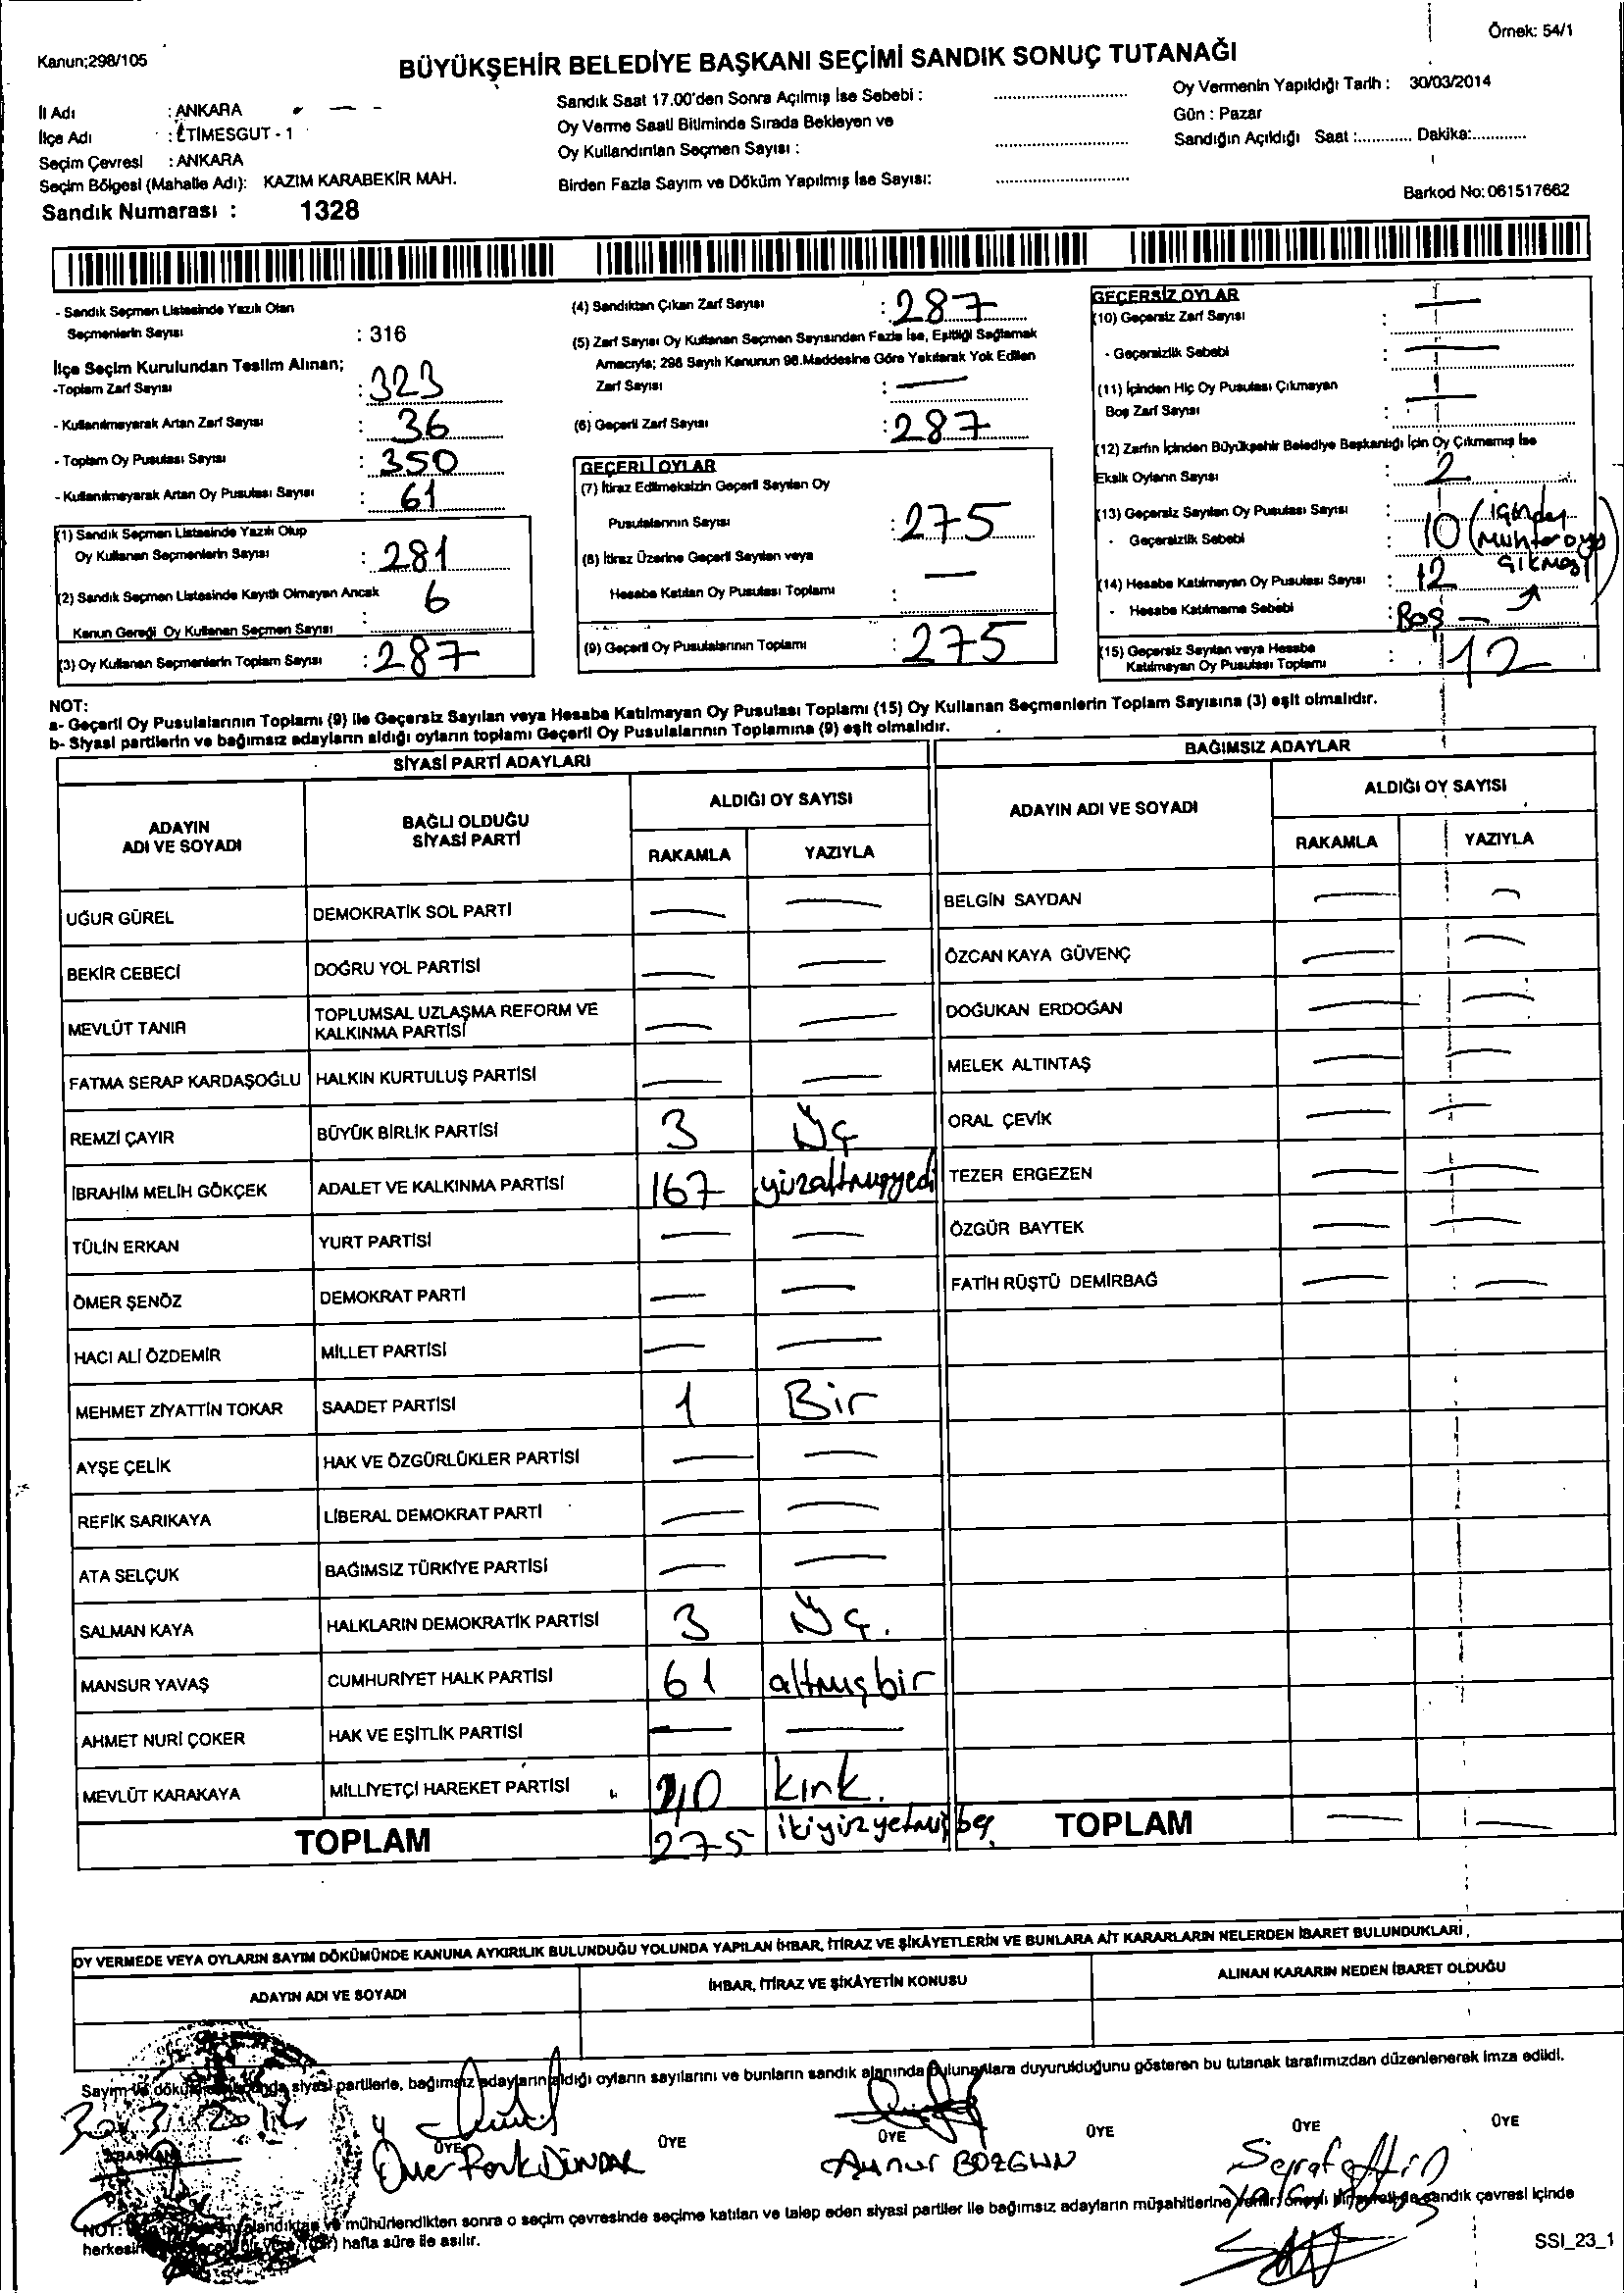 Örnek: 54/1
Kanun;298/105
BÜYÜKŞEHİR BELEDİYE BAŞKANI SEÇİMİ SANDIK SONUÇ TUTANAĞI
İl Adı : ANKARA
İlçe Adı : ETİMESGUT - 1
Seçim Çevresi : ANKARA
Seçim Bölgesi (Mahalle Adı): KAZIM KARABEKİR MAH.
Sandık Numarası : 1328
Sandık Saat 17.00'den Sonra Açılmış İse Sebebi :
Oy Verme Saati Bitiminde Sırada Bekleyen ve
Oy Kullandırılan Seçmen Sayısı :
Birden Fazla Sayım ve Döküm Yapılmış İse Sayısı:
Oy Vermenin Yapıldığı Tarih : 30/03/2014
Gün : Pazar
Sandığın Açıldığı Saat :............ Dakika:............
Barkod No: 061517662
- Sandık Seçmen Listesinde Yazılı Olan
Seçmenlerin Sayısı : 316
İlçe Seçim Kurulundan Teslim Alınan;
-Toplam Zarf Sayısı : 323
- Kullanılmayarak Artan Zarf Sayısı : 36
- Toplam Oy Pusulası Sayısı : 350
- Kullanılmayarak Artan Oy Pusulası Sayısı : 61
(1) Sandık Seçmen Listesinde Yazılı Olup
Oy Kullanan Seçmenlerin Sayısı : 281
(2) Sandık Seçmen Listesinde Kayıtlı Olmayan Ancak
Kanun Gereği Oy Kullanan Seçmen Sayısı : 6
(3) Oy Kullanan Seçmenlerin Toplam Sayısı : 287
(4) Sandıktan Çıkan Zarf Sayısı : 287
(5) Zarf Sayısı Oy Kullanan Seçmen Sayısından Fazla İse, Eşitliği Sağlamak
Amacıyla; 298 Sayılı Kanunun 98.Maddesine Göre Yakılarak Yok Edilen
Zarf Sayısı : —
(6) Geçerli Zarf Sayısı : 287
GEÇERLİ OYLAR
(7) İtiraz Edilmeksizin Geçerli Sayılan Oy
Pusulalarının Sayısı : 275
(8) İtiraz Üzerine Geçerli Sayılan veya
Hesaba Katılan Oy Pusulası Toplamı : —
(9) Geçerli Oy Pusulalarının Toplamı : 275
GEÇERSİZ OYLAR
(10) Geçersiz Zarf Sayısı : —
- Geçersizlik Sebebi : —
(11) İçinden Hiç Oy Pusulası Çıkmayan
Boş Zarf Sayısı : —
(12) Zarfın İçinden Büyükşehir Belediye Başkanlığı İçin Oy Çıkmamış İse
Eksik Oyların Sayısı : 2
(13) Geçersiz Sayılan Oy Pusulası Sayısı : 10
- Geçersizlik Sebebi :
(14) Hesaba Katılmayan Oy Pusulası Sayısı : 12
- Hesaba Katılmama Sebebi : Boş —
(15) Geçersiz Sayılan veya Hesaba
Katılmayan Oy Pusulası Toplamı : 12
NOT:
a- Geçerli Oy Pusulalarının Toplamı (9) ile Geçersiz Sayılan veya Hesaba Katılmayan Oy Pusulası Toplamı (15) Oy Kullanan Seçmenlerin Toplam Sayısına (3) eşit olmalıdır.
b- Siyasi partilerin ve bağımsız adayların aldığı oyların toplamı Geçerli Oy Pusulalarının Toplamına (9) eşit olmalıdır.
SİYASİ PARTİ ADAYLARI
ADAYIN ADI VE SOYADI BAĞLI OLDUĞU SİYASİ PARTİ ALDIĞI OY SAYISI
RAKAMLA YAZIYLA
UĞUR GÜREL DEMOKRATİK SOL PARTİ — —
BEKİR CEBECİ DOĞRU YOL PARTİSİ — —
MEVLÜT TANIR TOPLUMSAL UZLAŞMA REFORM VE KALKINMA PARTİSİ — —
FATMA SERAP KARDAŞOĞLU HALKIN KURTULUŞ PARTİSİ — —
REMZİ ÇAYIR BÜYÜK BİRLİK PARTİSİ 3 Üç
İBRAHİM MELİH GÖKÇEK ADALET VE KALKINMA PARTİSİ 167 yüzaltmışyedi
TÜLİN ERKAN YURT PARTİSİ — —
ÖMER ŞENÖZ DEMOKRAT PARTİ — —
HACI ALİ ÖZDEMİR MİLLET PARTİSİ — —
MEHMET ZİYATTİN TOKAR SAADET PARTİSİ 1 Bir
AYŞE ÇELİK HAK VE ÖZGÜRLÜKLER PARTİSİ — —
REFİK SARIKAYA LİBERAL DEMOKRAT PARTİ — —
ATA SELÇUK BAĞIMSIZ TÜRKİYE PARTİSİ — —
SALMAN KAYA HALKLARIN DEMOKRATİK PARTİSİ 3 Üç.
MANSUR YAVAŞ CUMHURİYET HALK PARTİSİ 61 altmışbir
AHMET NURİ ÇOKER HAK VE EŞİTLİK PARTİSİ — —
MEVLÜT KARAKAYA MİLLİYETÇİ HAREKET PARTİSİ kırk.
TOPLAM 275 ikiyüzyetmişbeş
BAĞIMSIZ ADAYLAR
ADAYIN ADI VE SOYADI ALDIĞI OY SAYISI
RAKAMLA YAZIYLA
BELGİN SAYDAN — —
ÖZCAN KAYA GÜVENÇ — —
DOĞUKAN ERDOĞAN — —
MELEK ALTINTAŞ — —
ORAL ÇEVİK — —
TEZER ERGEZEN — —
ÖZGÜR BAYTEK — —
FATİH RÜŞTÜ DEMİRBAĞ — —
TOPLAM — —
OY VERMEDE VEYA OYLARIN SAYIM DÖKÜMÜNDE KANUNA AYKIRILIK BULUNDUĞU YOLUNDA YAPILAN İHBAR, İTİRAZ VE ŞİKÂYETLERİN VE BUNLARA AİT KARARLARIN NELERDEN İBARET BULUNDUKLARI
ADAYIN ADI VE SOYADI İHBAR, İTİRAZ VE ŞİKÂYETİN KONUSU ALINAN KARARIN NEDEN İBARET OLDUĞU
Sayım ve siyasi partilerle, bağımsız adayların aldığı oyların sayılarını ve bunların sandık alanında bulunanlara duyurulduğunu gösteren bu tutanak tarafımızdan düzenlenerek imza edildi.
BAŞKAN ÜYE ÜYE ÜYE ÜYE ÜYE ÜYE
DÜNDAR BOZGUN
NOT: mühürlendikten sonra o seçim çevresinde seçime katılan ve talep eden siyasi partiler ile bağımsız adayların müşahitlerine sandık çevresi içinde
hafta süre ile asılır.
SSI_23_1